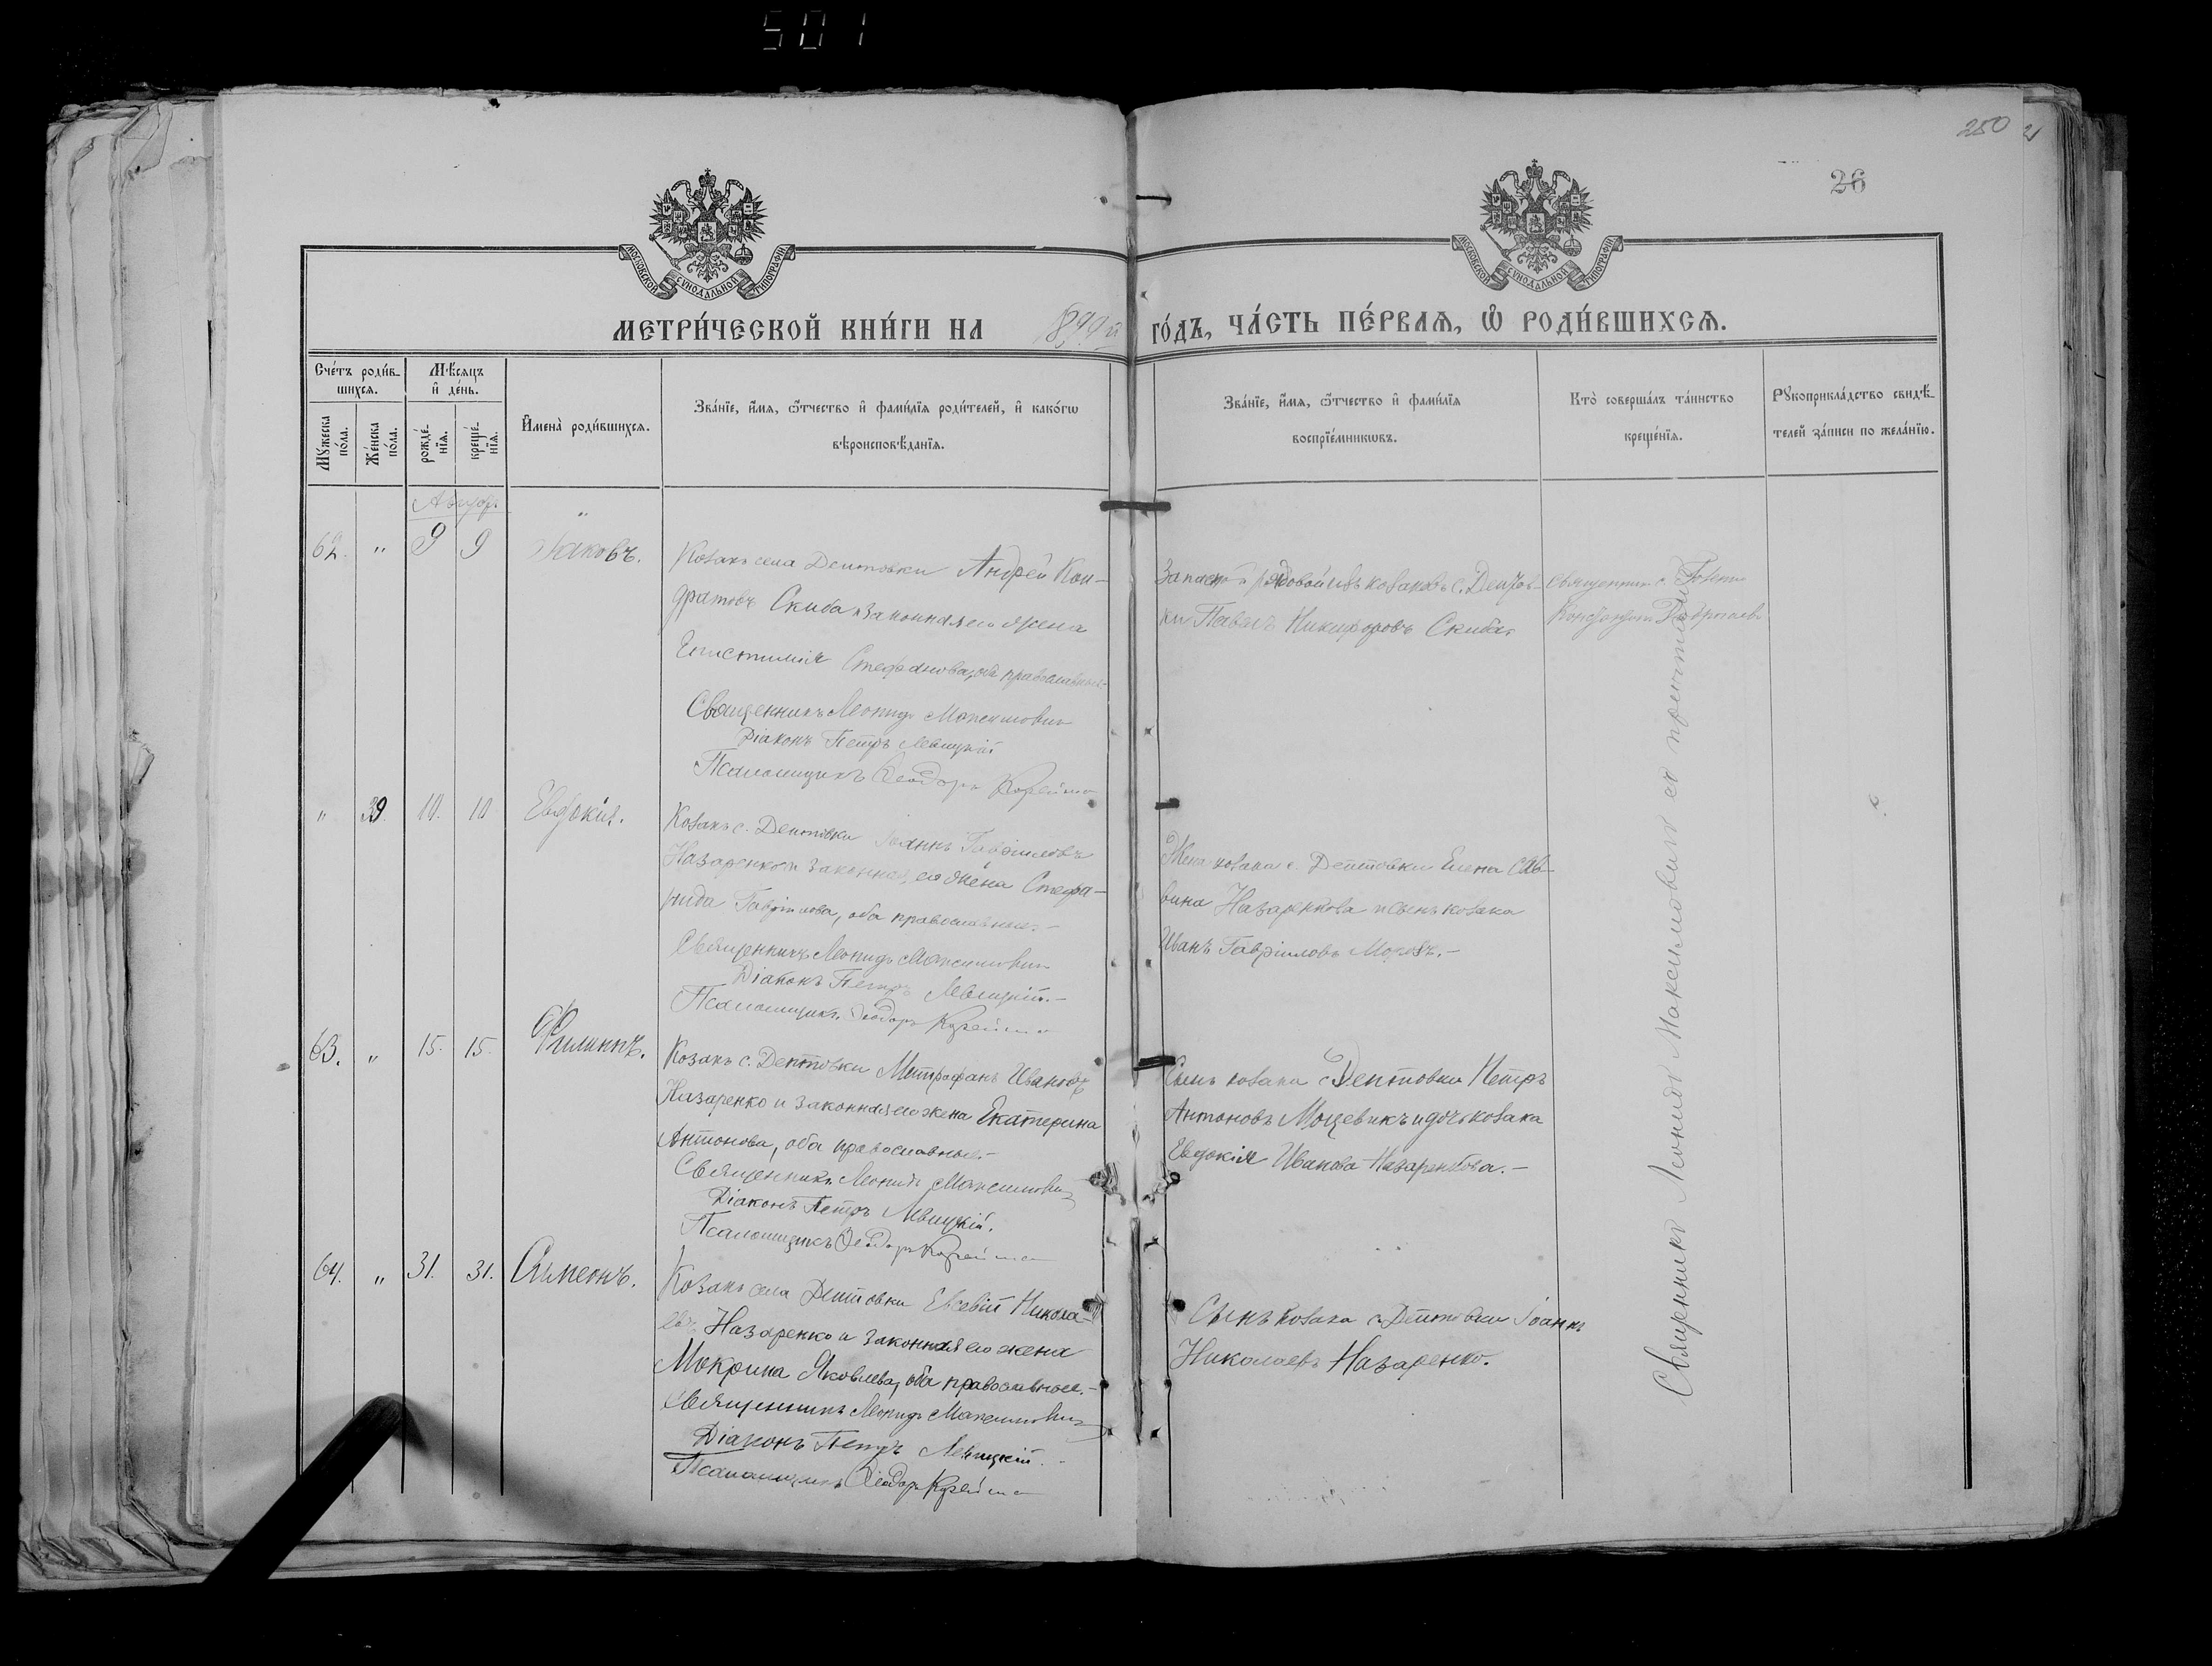 501
250
26
МОСКОВСКОЙ СУНОДАЛЬНОЙ ТИПОГРАФІИ
МОСКОВСКОЙ СУНОДАЛЬНОЙ ТИПОГРАФІИ
МЕТРИ́ЧЕСКОЙ КНИ́ГИ НА 1899й ГО́ДЪ, ЧА́СТЬ ПЕ́РВАѦ, Ѡ҆ РОДИ́ВШИХСѦ.
Сче́тъ роди́в-
шихсѧ.
Мꙋ́жеска по́ла.
Же́нска по́ла.
Мѣ́сѧцъ и҆ де́нь.
рожде́-нїѧ.
креще́-нїѧ.
И҆мена̀ роди́вшихсѧ.
Зва́нїе, и҆́мѧ, ѻ҆́тчество и҆ фами́лїѧ роди́телей, и҆ како́гѡ
вѣроисповѣ́данїѧ.
Зва́нїе, и҆́мѧ, ѻ҆́тчество и҆ фами́лїѧ
воспрїе́мникѡвъ.
Кто̀ соверша́лъ та́инство
креще́нїѧ.
Рꙋкоприкла́дство свидѣ́-
телей за́писи по жела́нїю.
62. " 9 9 Іаковъ.
Козакъ села Дептовки Андрей Кон-
дратовъ Скиба и законная его жена
Епистимія Стефанова, оба православные.
Священникъ Леонидъ Максимовичъ
Діаконъ Петръ Левицкій
Псаломщикъ Ѳеодоръ
Запасной рядовой изъ козаковъ с. Дептов-
ки Павелъ Никифоровъ Скиба.
Священникъ с.
Константинъ
" 39. 10. 10 Евдокія.
Козакъ с. Дептовки Іоаннъ Гавріиловъ
Назаренко и законная его жена Стефа-
нида Гавріилова, оба православные.-
Священникъ Леонидъ Максимовичъ
Діаконъ Петръ Левицкій.-
Псаломщикъ Ѳеодоръ
Жена козака с. Дептовки Елена Сав-
вина Назаренкова и сынъ козака
Иванъ Гавріиловъ Морозъ.-
63. " 15. 15. Филиппъ.
Козакъ с. Дептовки Митрофанъ Ивановъ
Назаренко и законная его жена Екатерина
Антонова, оба православные.-
Священникъ Леонидъ Максимовичъ
Діаконъ Петръ Левицкій.
Псаломщикъ Ѳеодоръ
Сынъ козака с. Дептовки Петръ
Антоновъ и дочь козака
Евдокія Иванова Назаренкова.-
64. " 31. 31. Сѵмеонъ.
Козакъ села Дептовки Евсевій Никола-
евъ Назаренко и законная его жена
Мокрина Яковлева, оба православные.-
Священникъ Леонидъ Максимовичъ
Діаконъ Петръ Левицкій.-
Псаломщикъ Ѳеодоръ
Сынъ козака с. Дептовки Іоаннъ
Николаевъ Назаренко.
Священникъ Леонидъ Максимовичъ съ причтомъ